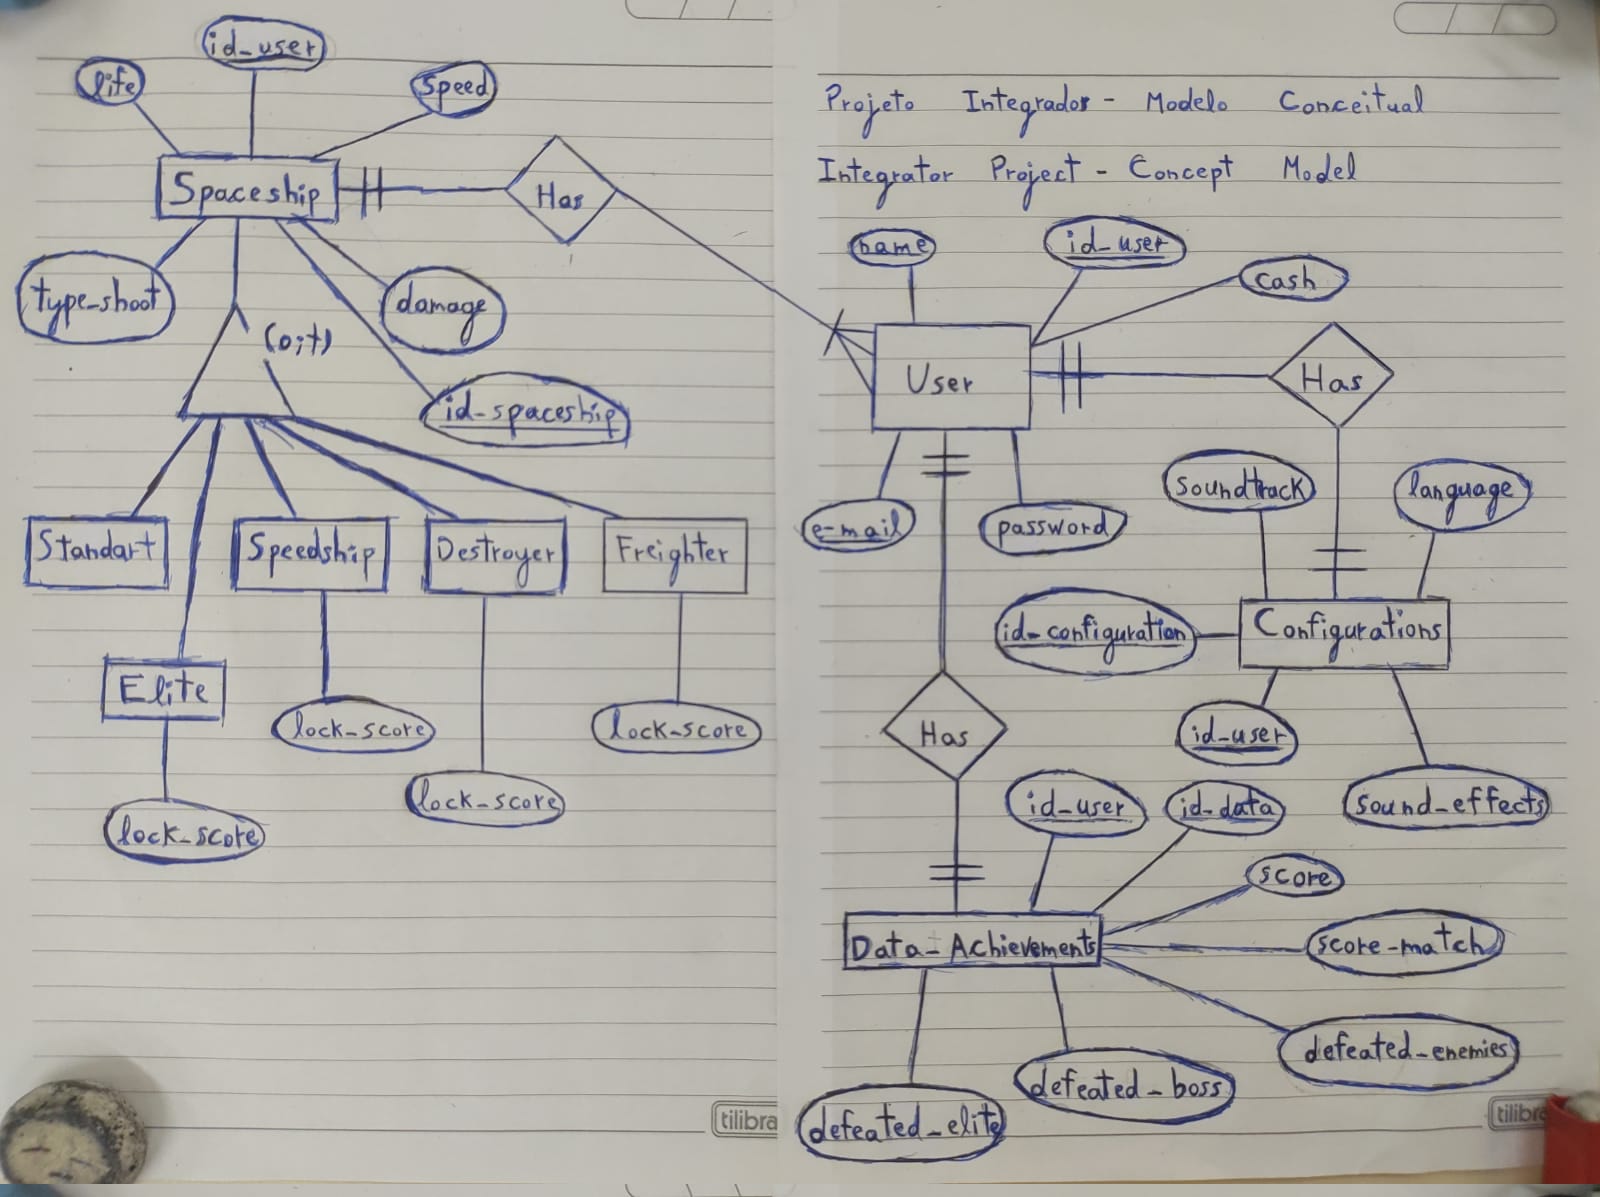 id_user
life
speed
Spaceship
Has
type_shoot
damage
(o;t)
id-spaceship
Standart
Speedship
Destroyer
Freighter
Elite
lock_score
lock_score
lock_score
lock_score
tilibra
Projeto Integrador - Modelo Conceitual
Integrator Project - Concept Model
name
id_user
cash
User
Has
soundtrack
language
e-mail
password
id_configuration
Configurations
id_user
Has
sound_effects
id_user
id_data
score
Data_Achievements
score-match
defeated_enemies
defeated_boss
defeated_elite
tilibra